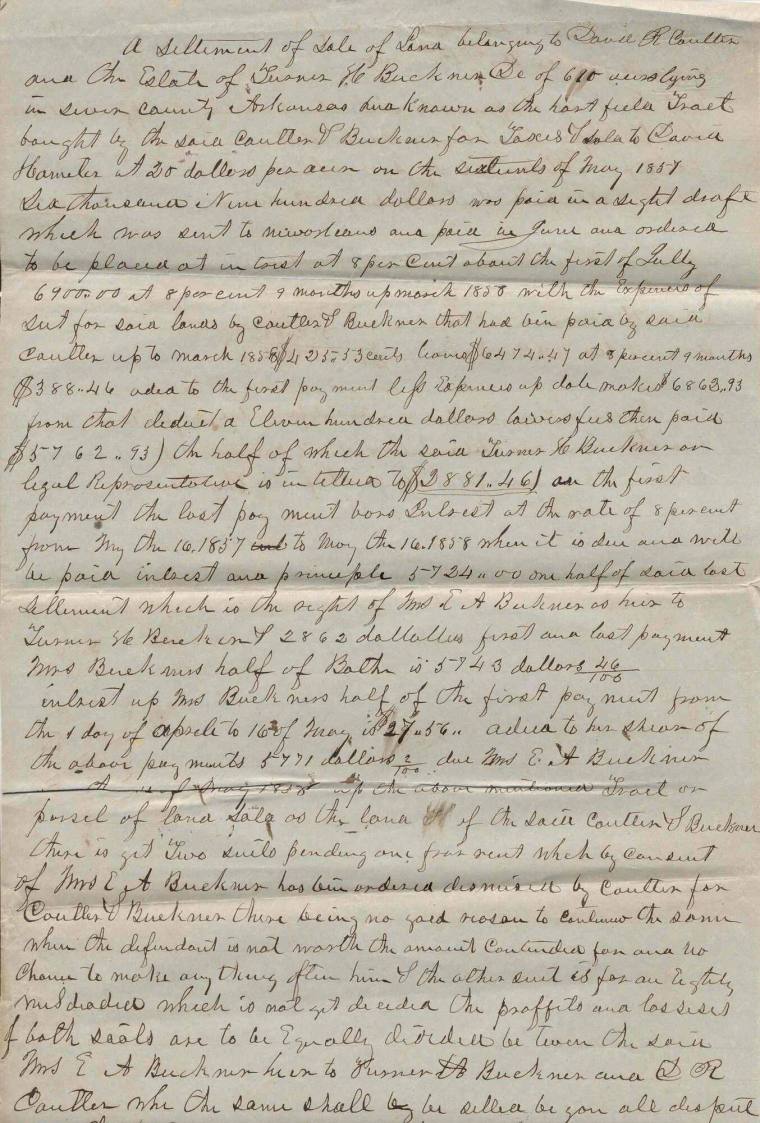 A Settlement of Sale of Land belonging to David R Coulter
and the Estate of Turner H Buckner De of 610 acurs lying
in sevier county Arkansas and known as the hartfield Tract
bought by the said Coulter & Buckner for Taxes & sola to David
Hamiter at 20 dollars per acur on the of May 1857
Six thousand Nine hundred dollars was paid in a sight draft
which was sent to neworleans and paid in June and ordered
to be placed at intrist at 8 per Cent about the first of Jully
6900.00 at 8 per cent 9 months up march 1858 with the Expences of
Sut for said lands by Coulter & Buckner that had bin paid by said
Coulter up to march 1858 $425..53 cents leaves $6474..47 at 8 percent 9 months
$388..46 adea to the first payment less Expences up date makes $6862..93
from that deduct a Eleven hundred dollars lawers fees then paid
$5762..93) the half of which the said Turner H Buckner or
legal Representative is intitled to ($2881..46) on the first
payment the last pay ment bors Intrest at the rate of 8 percent
from My the 16.1857 to May the 16.1858 when it is due and will
be paid intrest and principle 5724..00 one half of said last
settlement which is the right of Mrs E A Buckner as heir to
Turner H Buckner & 2862 dollallers first and last payment
Mrs Buckners half of Bothe is 5743 dollars 46/100
intrest up Mrs Buckners half of the first pay ment from
the 1 day of Aprele to 16 of May is $27..56.. adea to her shear of
the above pay ments 5771 dollars 2/100 due Mrs E. A Buckner
of May 1858 up the above mentioned Tract or
parsel of land Sola as the land of the said Coulter & Buckner
there is yet Two suits pending one for rent which by consent
of Mrs E A Buckner has bin ordered dismised by Coulter for
Coulter & Buckner there being no good reason to continue the same
when the defendant is not worth the amount Contended for and no
Chance to make any thing often him & the other suit is for an Eightey
which is not yet decided the proffits and losses
of both are to be Equally divided be twen the said
Mrs E A Buckner heir to Turner H Buckner and D R
Coulter whe the same shall be selled be yon all disput